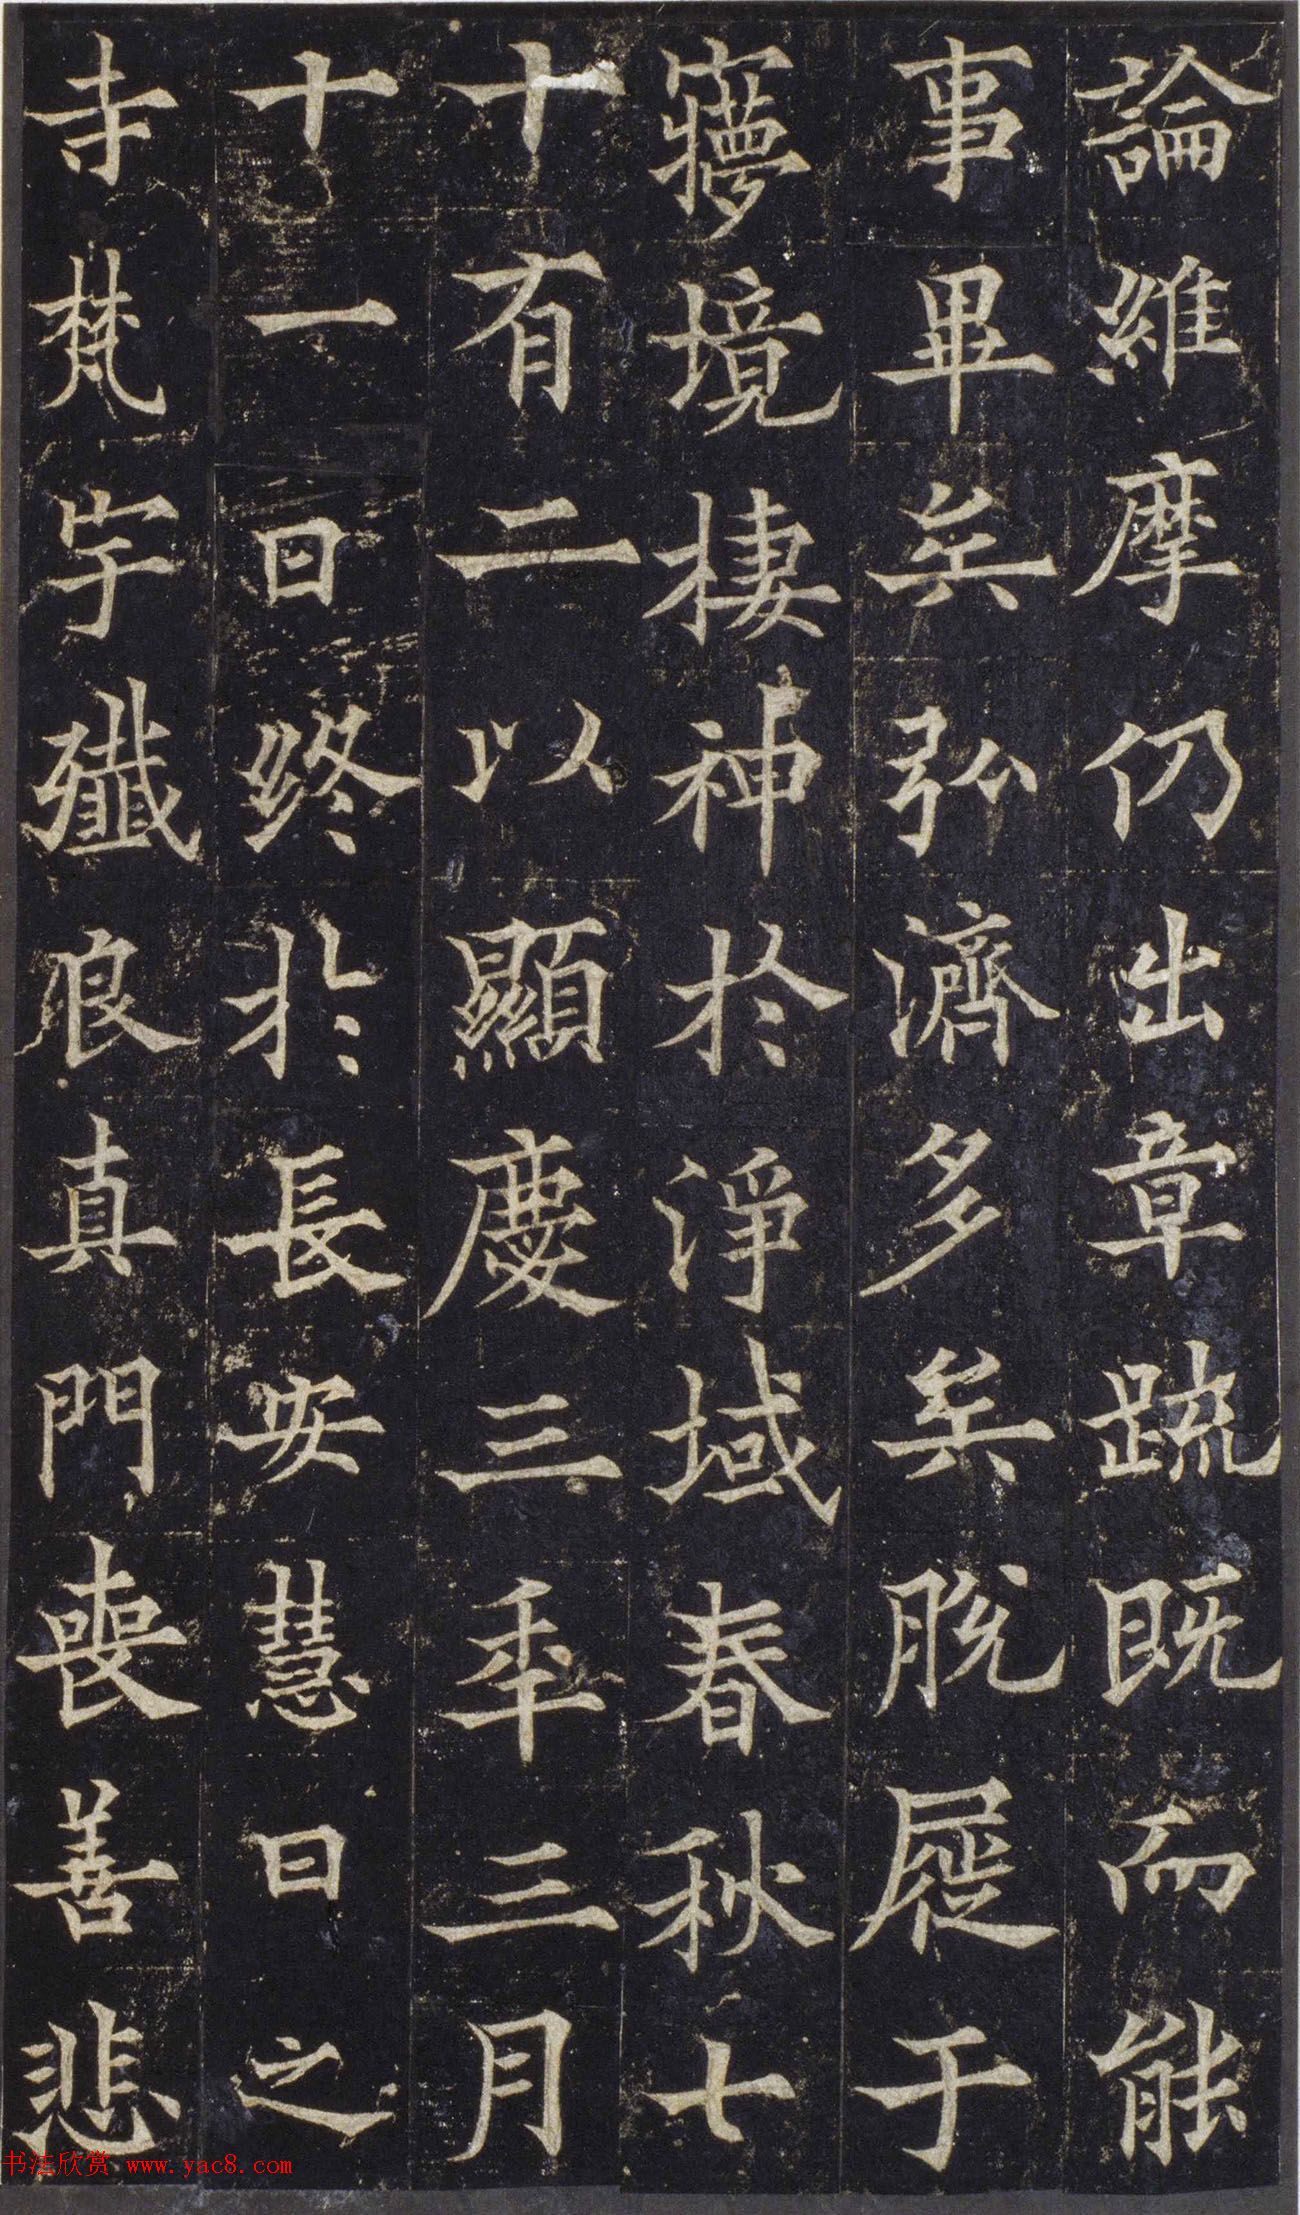 論維摩仍出章疏既而能
事畢矣弘濟多矣脫屣于
㝱境棲神於淨域春秋七
十有二以顯慶三年三月
十一日終於長安慧日之
寺梵宇殲良真門喪善悲
书法欣赏 www.yac8.com